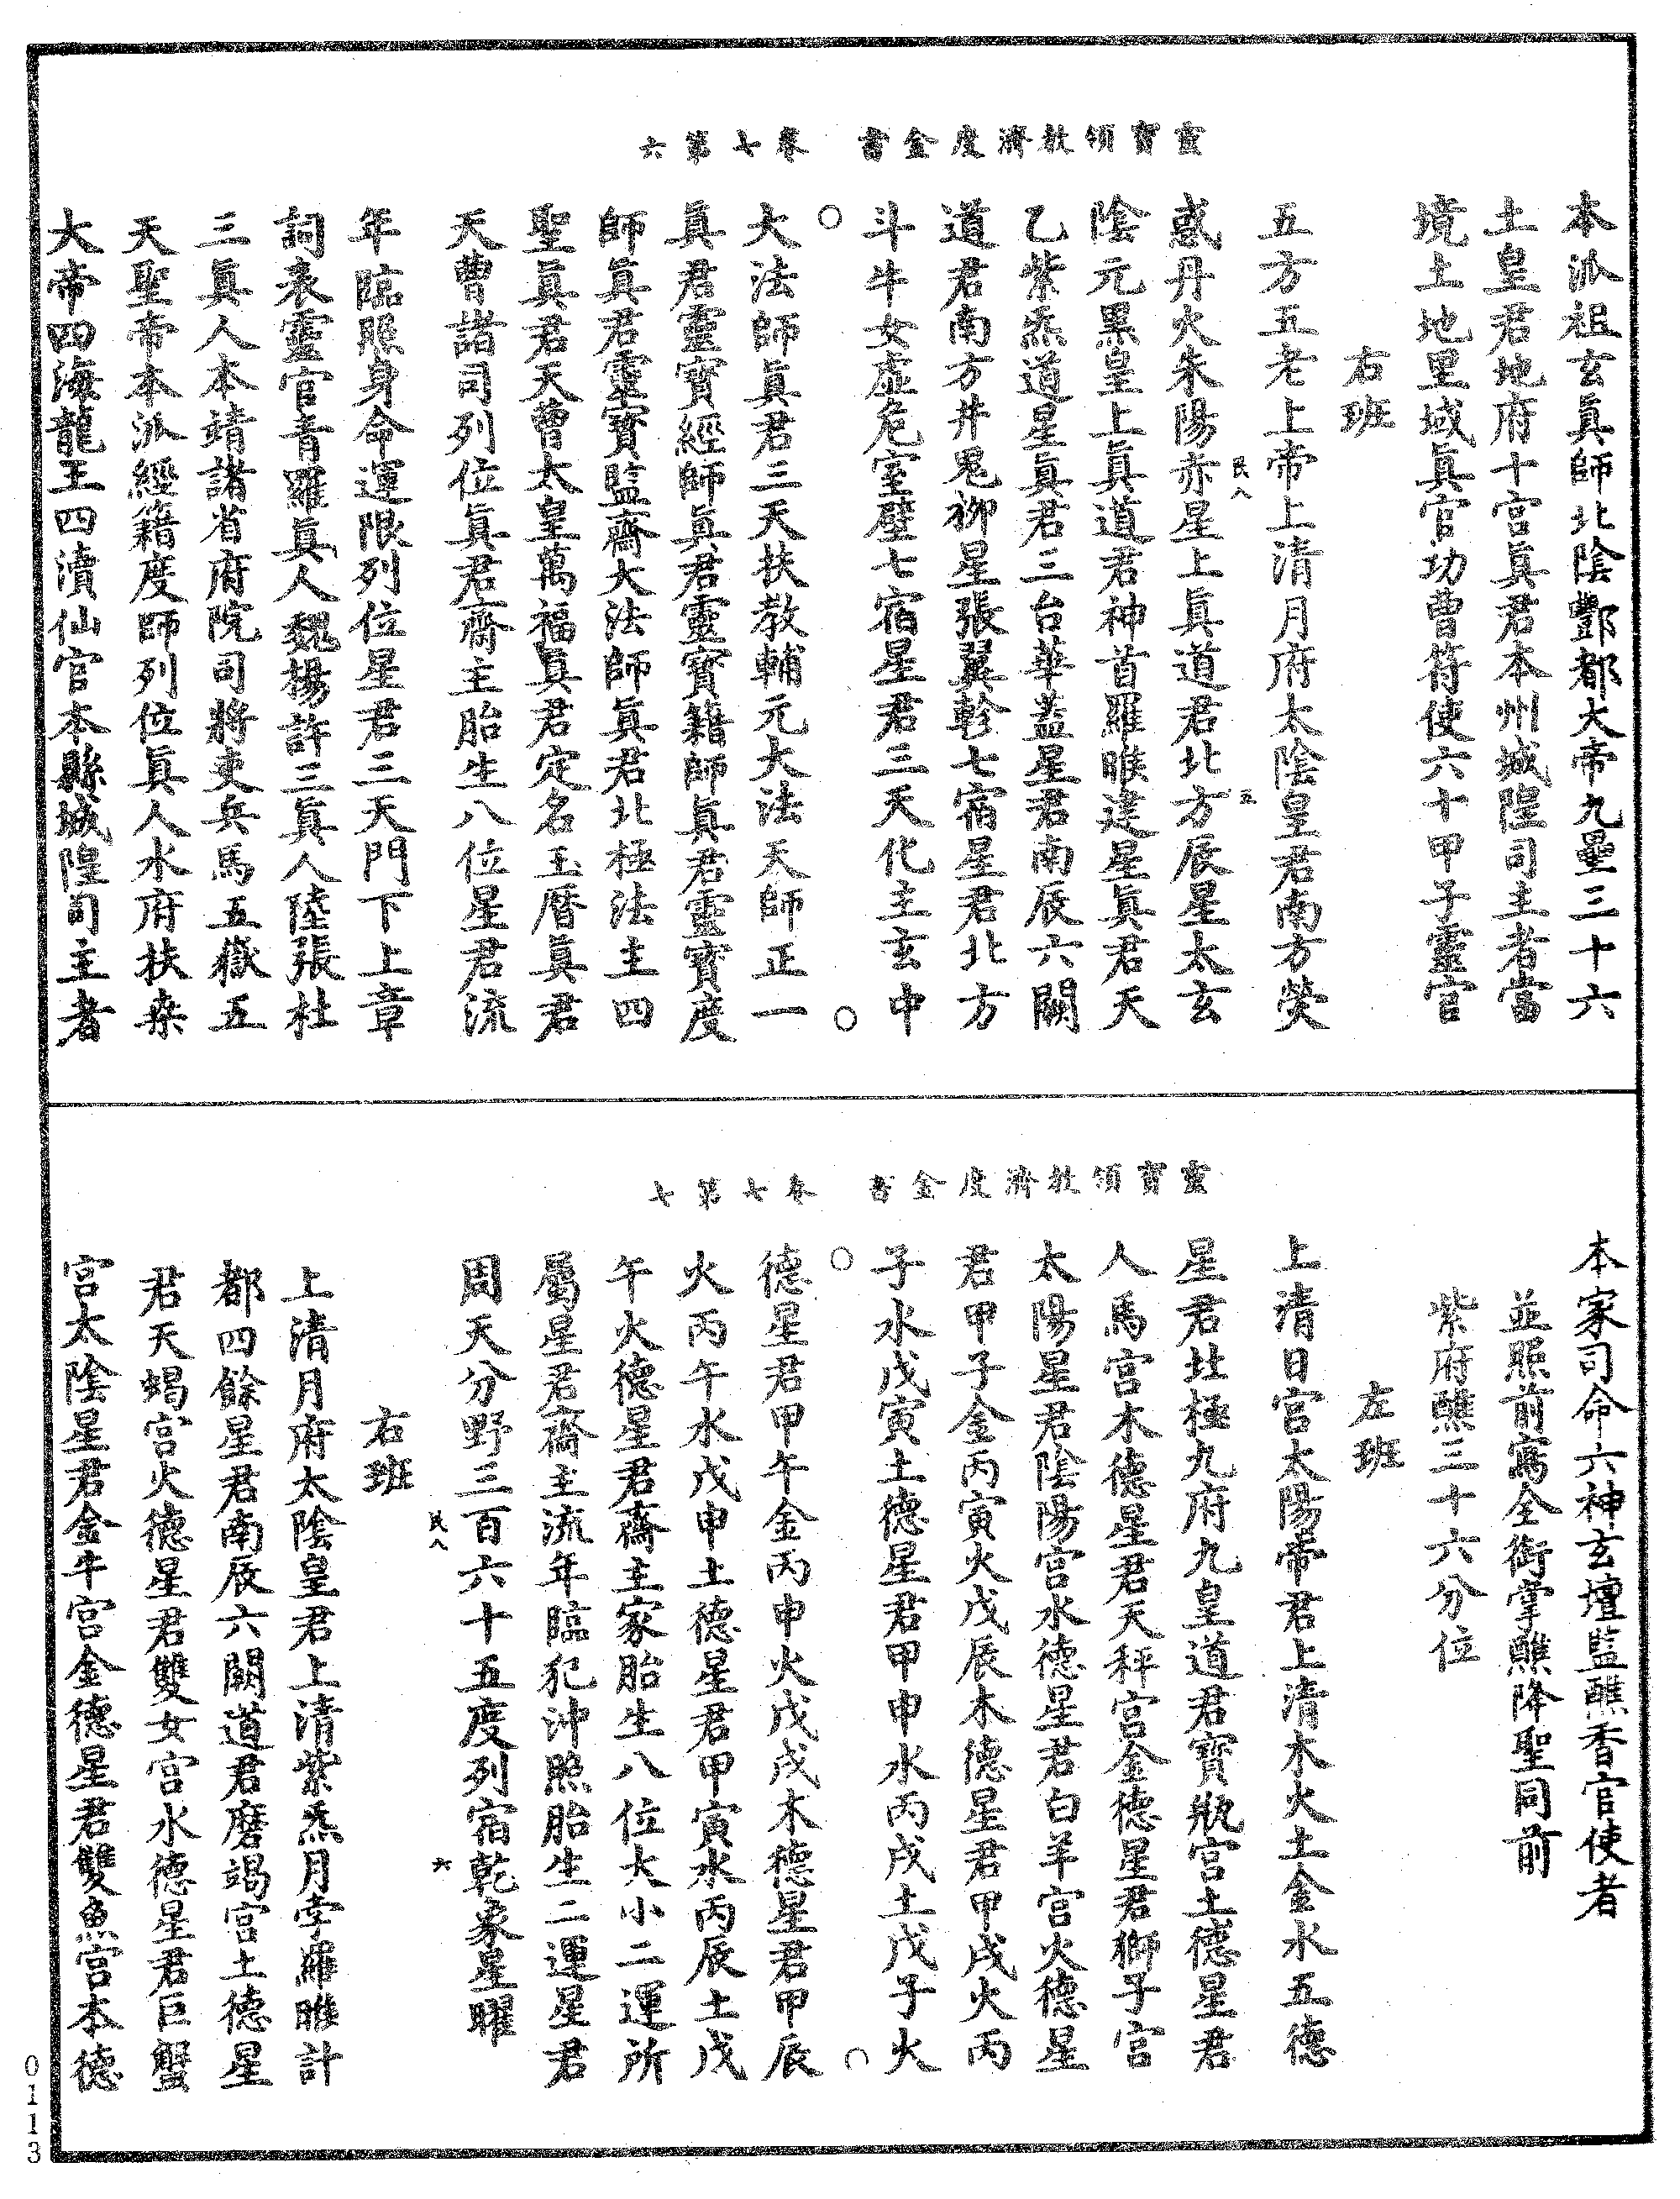 靈寶領教濟度金書　卷七第六
本派祖玄眞師北陰酆都大帝九壘三十六
土皇君地府十宮眞君本州城隍司主者當
境土地里域眞官功曹符使六十甲子靈官
右班
五方五老上帝上清月府太陰皇君南方熒
惑丹火朱陽赤星上眞道君北方辰星太玄
陰元黑皇上眞道君神首羅睺建星眞君天
乙紫炁道星眞君三台華蓋星君南辰六闕
道君南方井鬼柳星張翼軫七宿星君北方
斗牛女虛危室壁七宿星君三天化主玄中
大法師眞君三天扶教輔元大法天師正一
眞君靈寶經師眞君靈寶籍師眞君靈寶度
師眞君靈寶監齋大法師眞君北極法主四
聖眞君天曹太皇萬福眞君定名玉曆眞君
天曹諸司列位眞君齋主胎生八位星君流
年臨照身命運限列位星君三天門下上章
詞表靈官青羅眞人魏楊許三眞人陸張杜
三眞人本靖諸省府院司將吏兵馬五嶽五
天聖帝本派經籍度師列位眞人水府扶桒
大帝四海龍王四瀆仙官本縣城隍司主者
民八
五
靈寶領教濟度金書　卷七第七
本家司命六神玄壇監醮香官使者
並照前寫全銜掌醮降聖同前
紫府醮三十六分位
左班
上清日宮太陽帝君上清木火土金水五德
星君北極九府九皇道君寶瓶宮土德星君
人馬宮木德星君天秤宮金德星君獅子宮
太陽星君陰陽宮水德星君白羊宮火德星
君甲子金丙寅火戊辰木德星君甲戌火丙
子水戊寅土德星君甲申水丙戌土戊子火
德星君甲午金丙申火戊戌木德星君甲辰
火丙午水戊申土德星君甲寅水丙辰土戊
午火德星君齋主家胎生八位大小二運所
屬星君齋主流年臨犯沖照胎生二運星君
周天分野三百六十五度列宿乾象星曜
右班
上清月府太陰皇君上清紫炁月孛羅睺計
都四餘星君南辰六闕道君磨竭宮土德星
君天蝎宮火德星君雙女宮水德星君巨蟹
宮太陰星君金牛宮金德星君雙魚宮木德
民八
六
0113